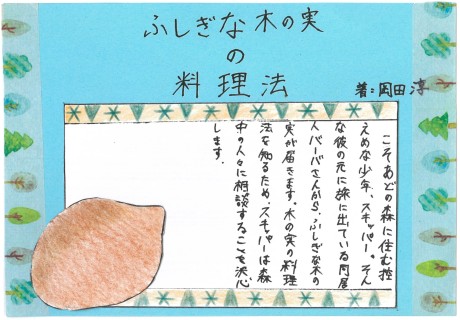 ふしぎな木の実
の
料理法
著：岡田淳
こそあどの森に住む控
えめな少年、スキッパー。そん
な彼の元に旅に出ている同居
人バーバさんから、ふしぎな木の
実が届きます。木の実の料理
法を知るため、スキッパーは森
中の人々に相談することを決心
します。